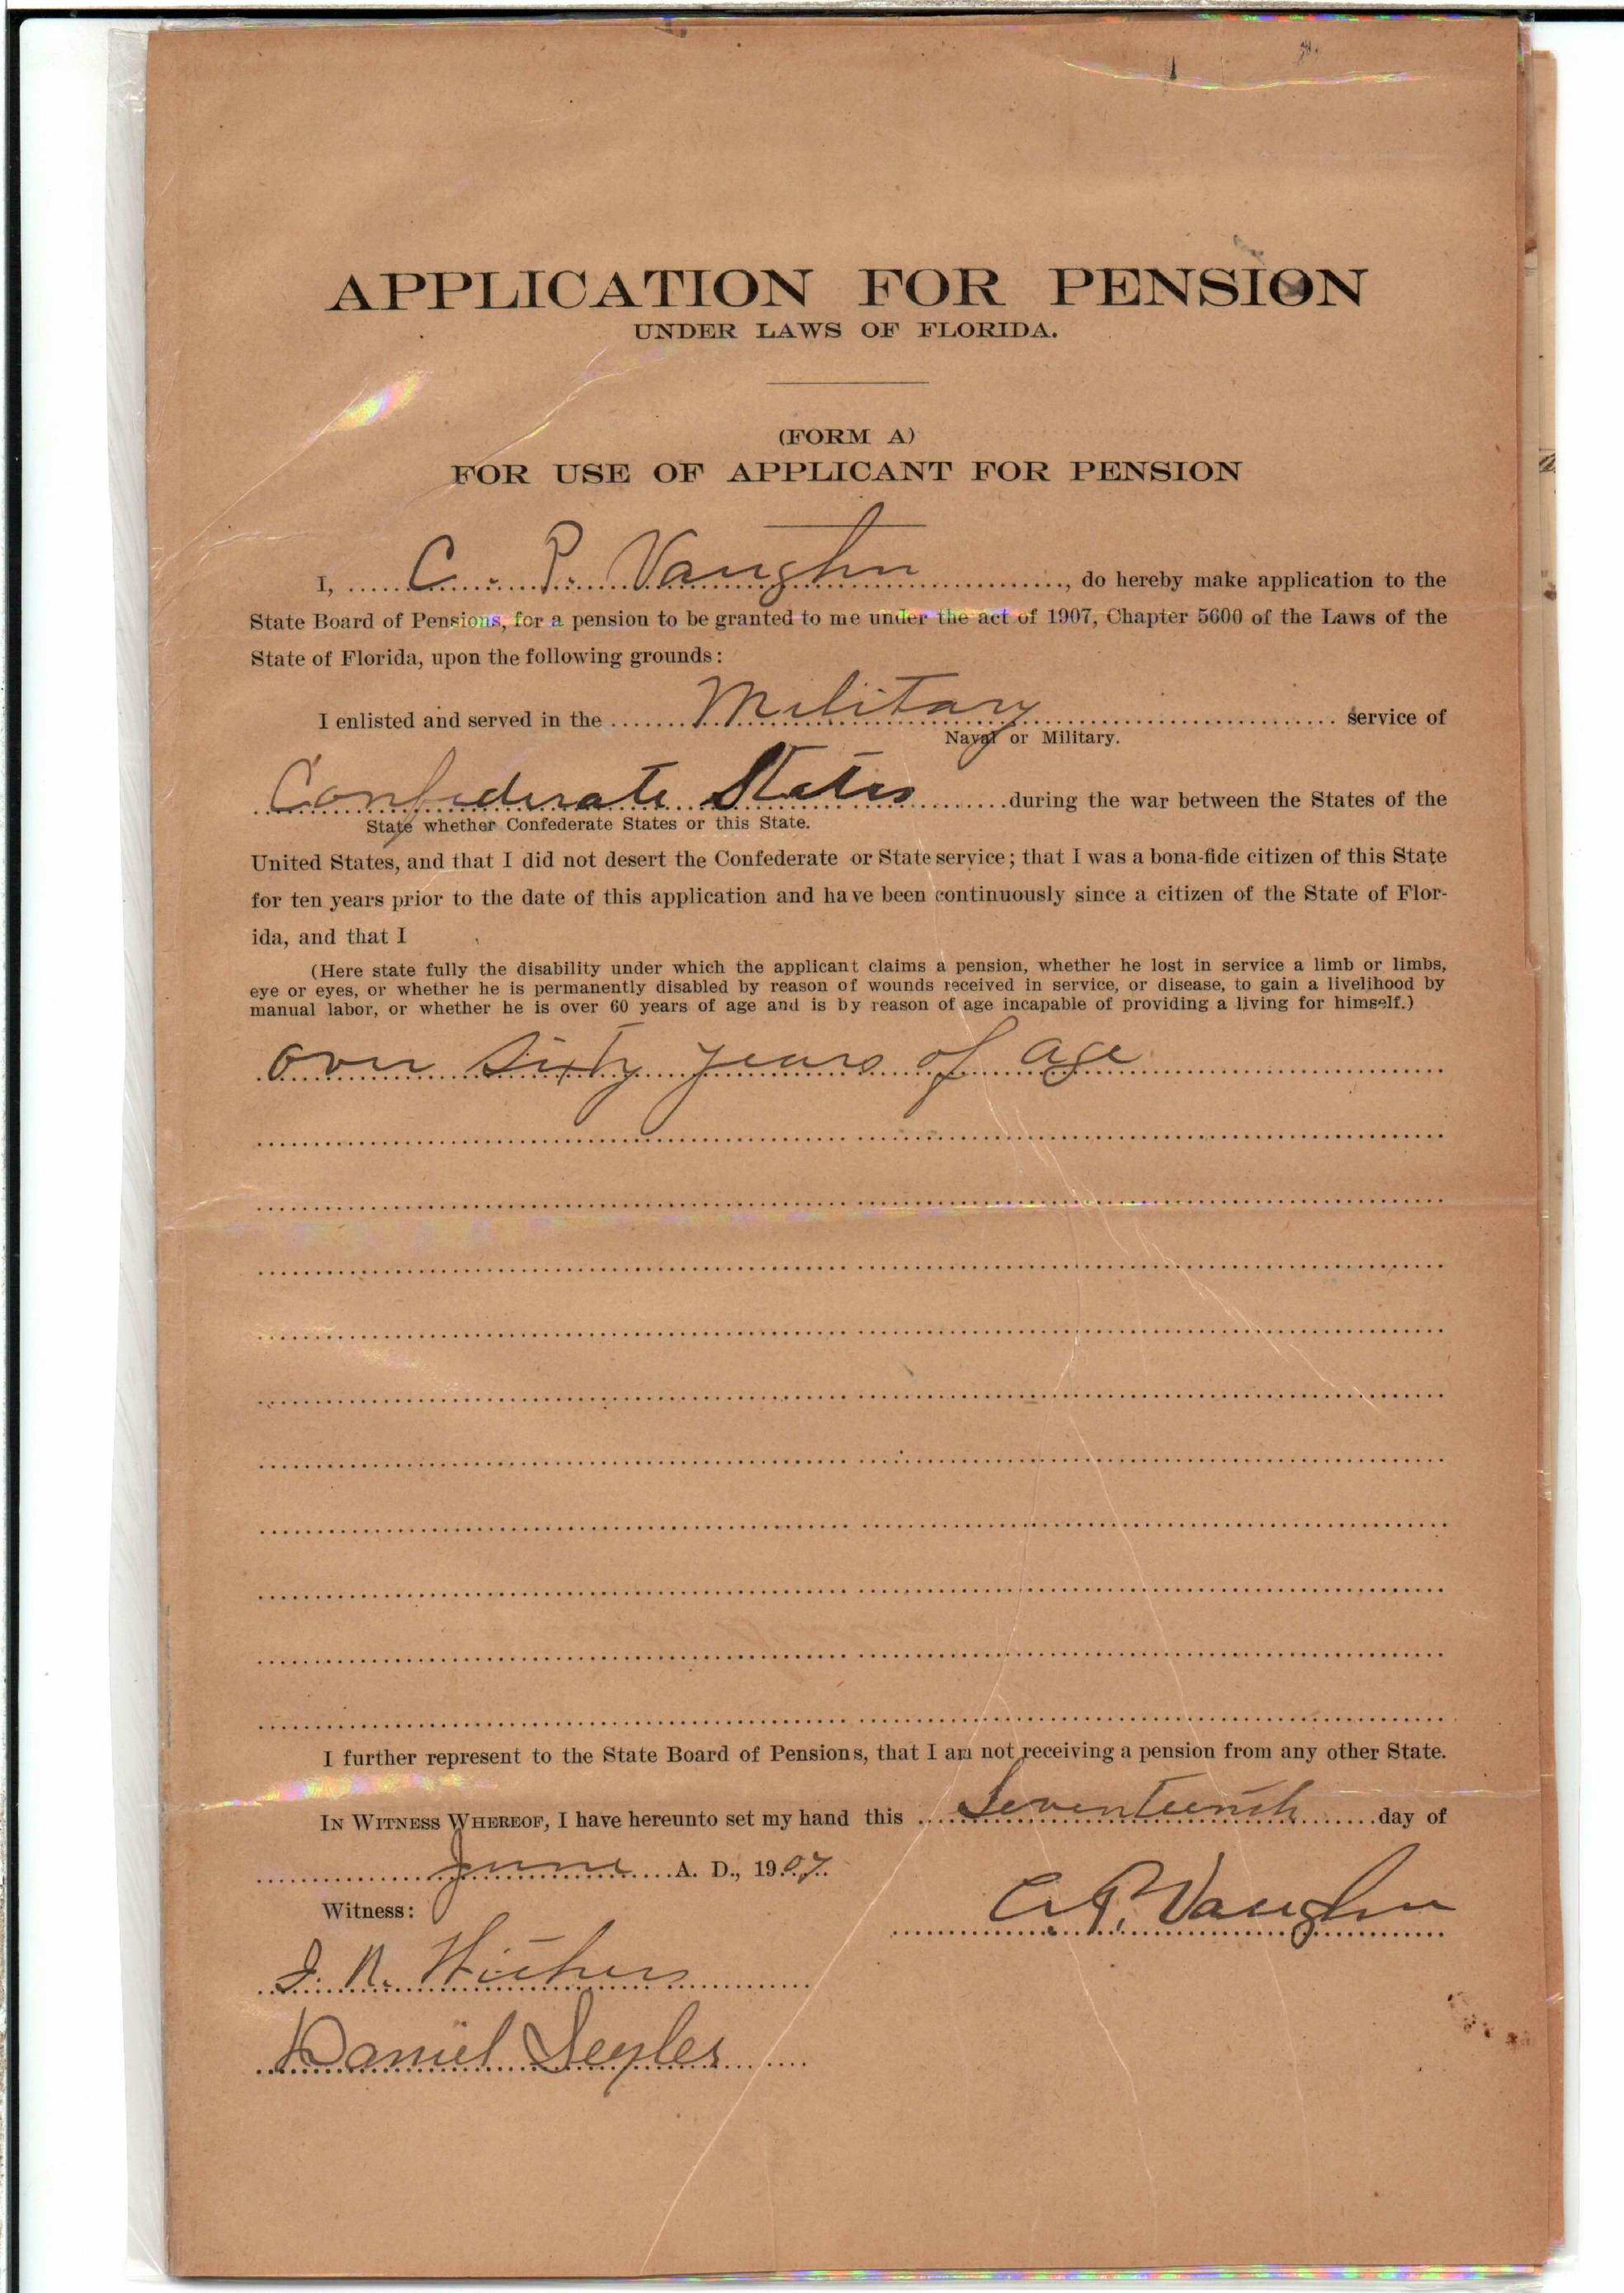 APPLICATION FOR PENSION
UNDER LAWS OF FLORIDA.
(FORM A)
FOR USE OF APPLICANT FOR PENSION
I, C. P. Vaughn, do hereby make application to the
State Board of Pensions, for a pension to be granted to me under the act of 1907, Chapter 5600 of the Laws of the
State of Florida, upon the following grounds:
I enlisted and served in the Military service of
Naval or Military.
Confederate States during the war between the States of the
State whether Confederate States or this State.
United States, and that I did not desert the Confederate or State service; that I was a bona-fide citizen of this State
for ten years prior to the date of this application and have been continuously since a citizen of the State of Flor-
ida, and that I
(Here state fully the disability under which the applicant claims a pension, whether he lost in service a limb or limbs,
eye or eyes, or whether he is permanently disabled by reason of wounds received in service, or disease, to gain a livelihood by
manual labor, or whether he is over 60 years of age and is by reason of age incapable of providing a living for himself.)
Over sixty years of age
I further represent to the State Board of Pensions, that I am not receiving a pension from any other State.
IN WITNESS WHEREOF, I have hereunto set my hand this Seventeenth day of
June A. D., 1907.
Witness:
C. P. Vaughn
J. R.
Daniel